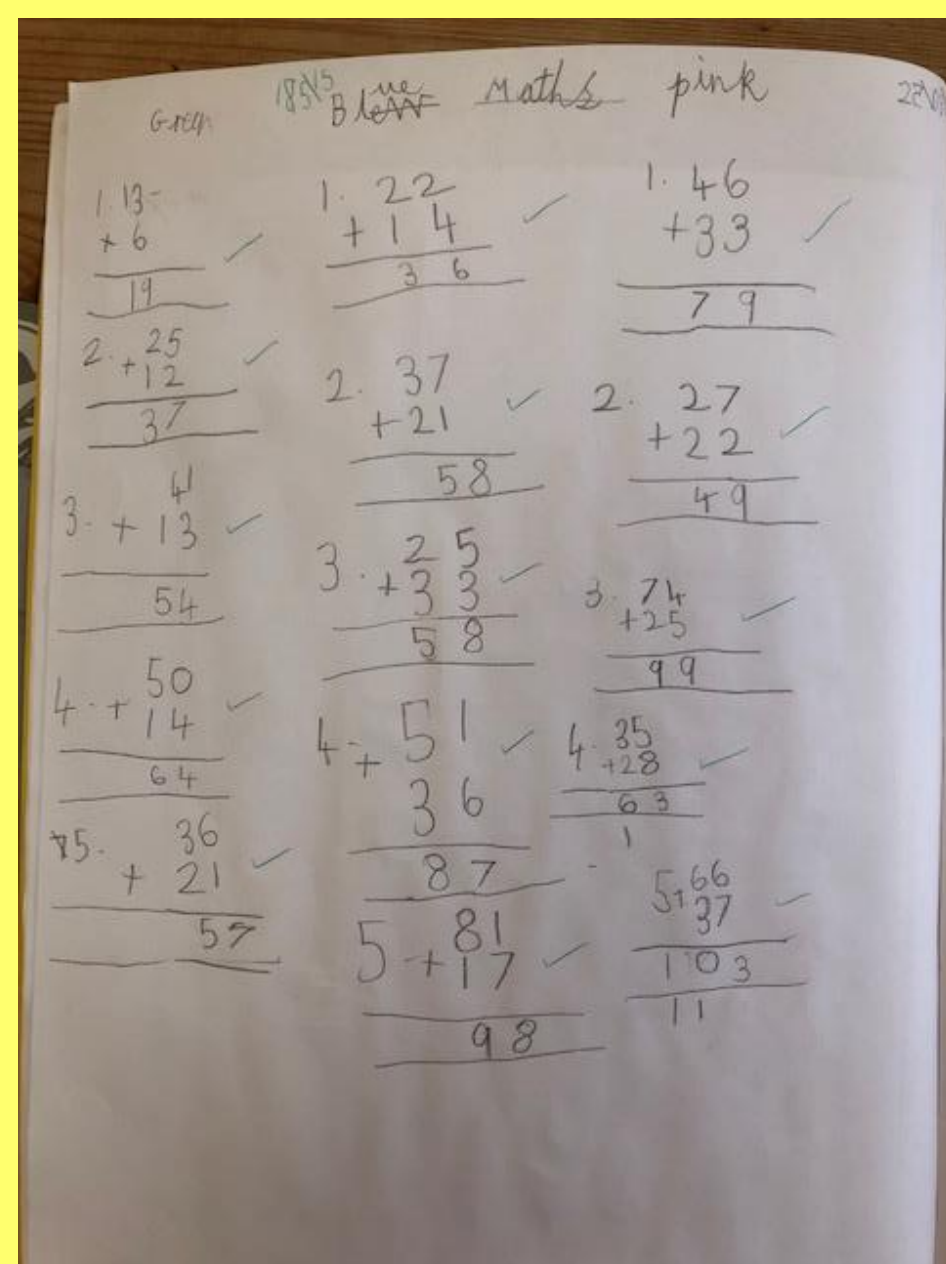 Green Blue Maths pink
1. 13
+ 6
19
2. 25
+ 12
37
3. 41
+ 13
54
4. 50
+ 14
64
5. 36
+ 21
57
1. 22
+ 14
36
2. 37
+ 21
58
3. 25
+ 33
58
4. 51
+ 36
87
5 81
+ 17
98
1. 46
+ 33
79
2. 27
+ 22
49
3. 74
+ 25
99
4. 35
+ 28
63
1
5. 66
+ 37
103
11